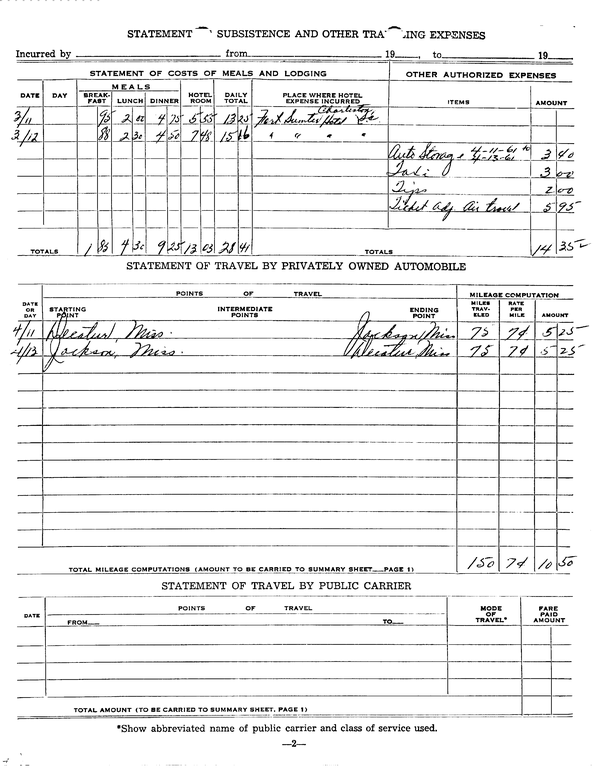 STATEMENT SUBSISTENCE AND OTHER ING EXPENSES
Incurred by from 19 , to 19
STATEMENT OF COSTS OF MEALS AND LODGING OTHER AUTHORIZED EXPENSES
MEALS
DATE DAY BREAK-FAST LUNCH DINNER HOTEL ROOM DAILY TOTAL PLACE WHERE HOTEL EXPENSE INCURRED ITEMS AMOUNT
3/11 95 2 00 4 75 5 55 13 25 Fort Sumter Hotel Charleston
3/12 88 2 30 4 50 7 48 15 16 " " " "
Auto Storage 4-11-61 to 4-13-61 3 40
Taxi 3 00
Tips 2 00
Ticket adj Air travel 5 95
TOTALS 1 83 4 30 9 25 13 03 28 41 TOTALS 14 35
STATEMENT OF TRAVEL BY PRIVATELY OWNED AUTOMOBILE
POINTS OF TRAVEL MILEAGE COMPUTATION
DATE OR DAY STARTING POINT INTERMEDIATE POINTS ENDING POINT MILES TRAV-ELED RATE PER MILE AMOUNT
4/11 Decatur, Miss. Jackson, Miss 75 7¢ 5 25
4/13 Jackson, Miss. Decatur Miss 75 7¢ 5 25
TOTAL MILEAGE COMPUTATIONS (AMOUNT TO BE CARRIED TO SUMMARY SHEET PAGE 1) 150 7¢ 10 50
STATEMENT OF TRAVEL BY PUBLIC CARRIER
DATE POINTS OF TRAVEL MODE OF TRAVEL* FARE PAID AMOUNT
FROM TO
TOTAL AMOUNT (TO BE CARRIED TO SUMMARY SHEET, PAGE 1)
*Show abbreviated name of public carrier and class of service used.
—2—